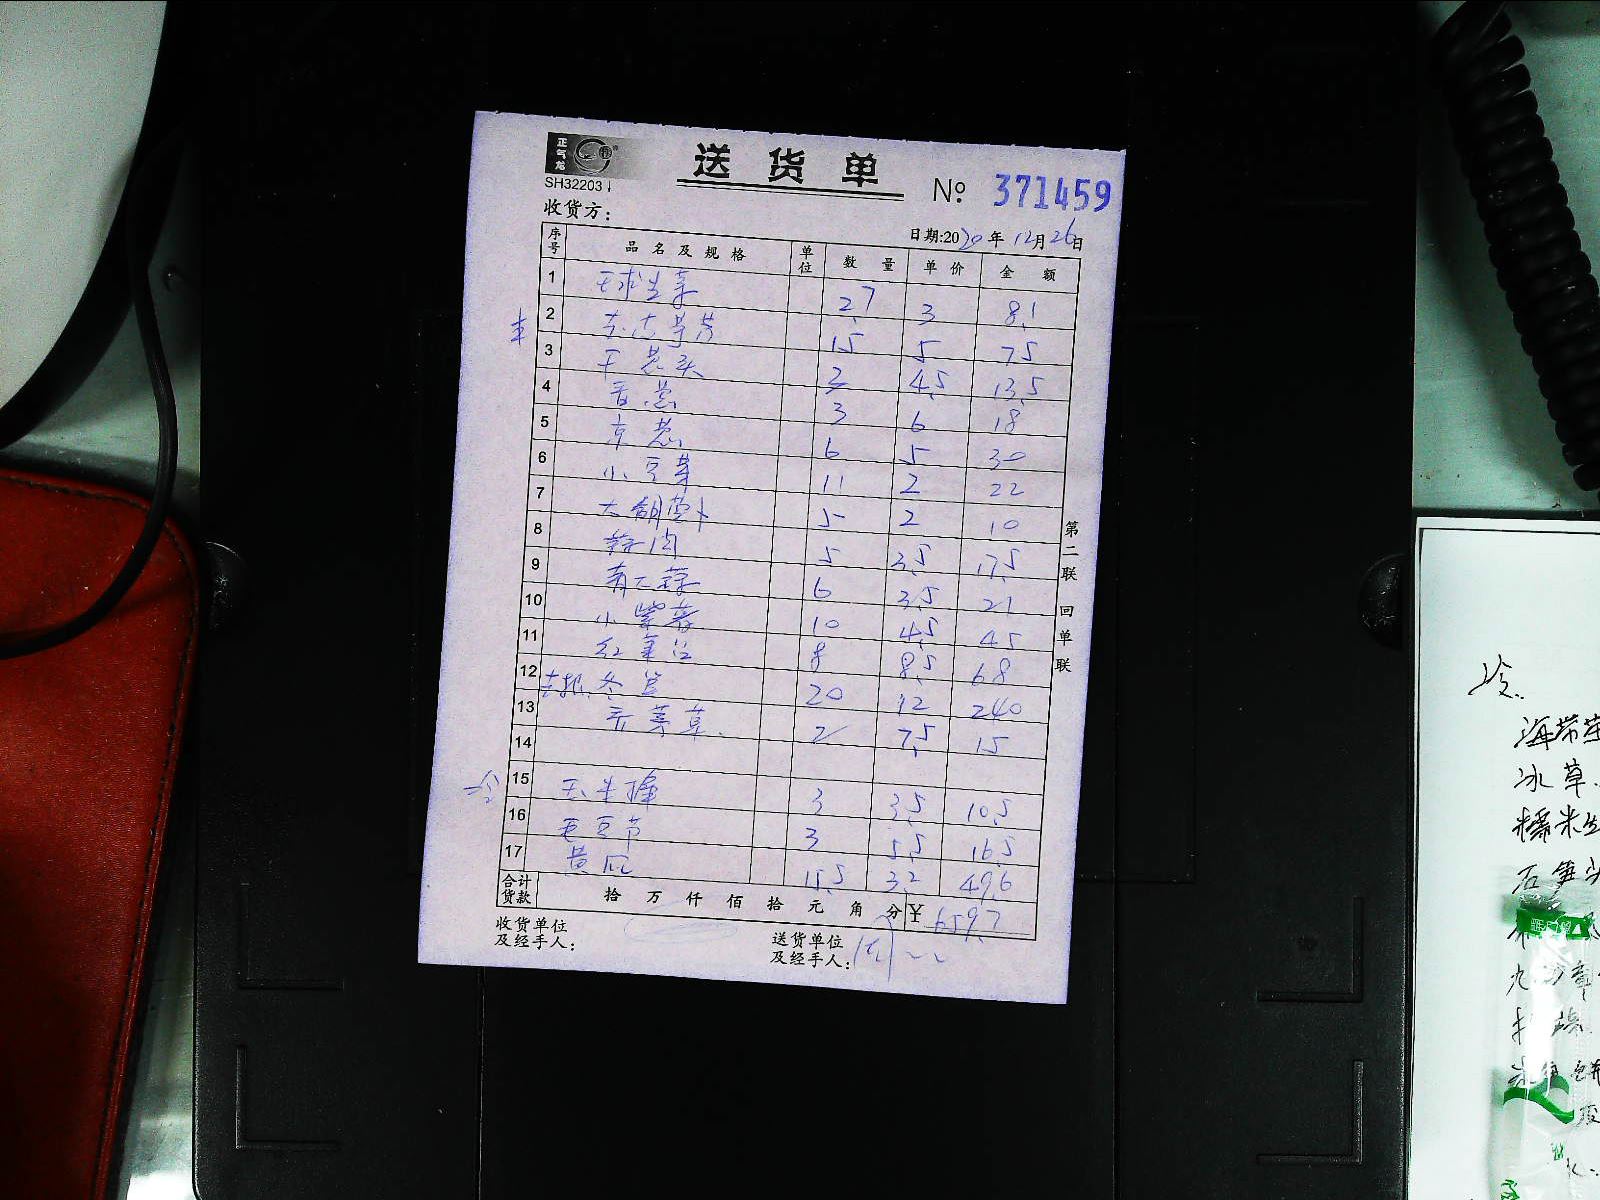 正气龙
SH32203
送货单
№ 371459
收货方：
日期:2020年12月26日
序号 品名及规格 单位 数量 单价 金额
1 球生菜 27 3 81
2 15 5 75
3 干葱头 3 4.5 13.5
4 香葱 3 6 18
5 京葱 6 5 30
6 小豆芽 11 2 22
7 大胡萝卜 5 2 10
8 蒜肉 5 3.5 17.5
9 青大蒜 6 3.5 21
10 小紫薯 10 4.5 45
11 红 8 8.5 68
12 冬笋 20 12 240
13 草 2 7.5 15
14
冷
15 3 3.5 10.5
16 毛豆节 3 5.5 16.5
17 黄瓜 15.5 3.2 49.6
合计货款 拾 万 仟 佰 拾 元 角 分 ¥ 659.7
收货单位及经手人：
送货单位及经手人：
第二联 回单联
冷
海带
冰草
糯米
石笋